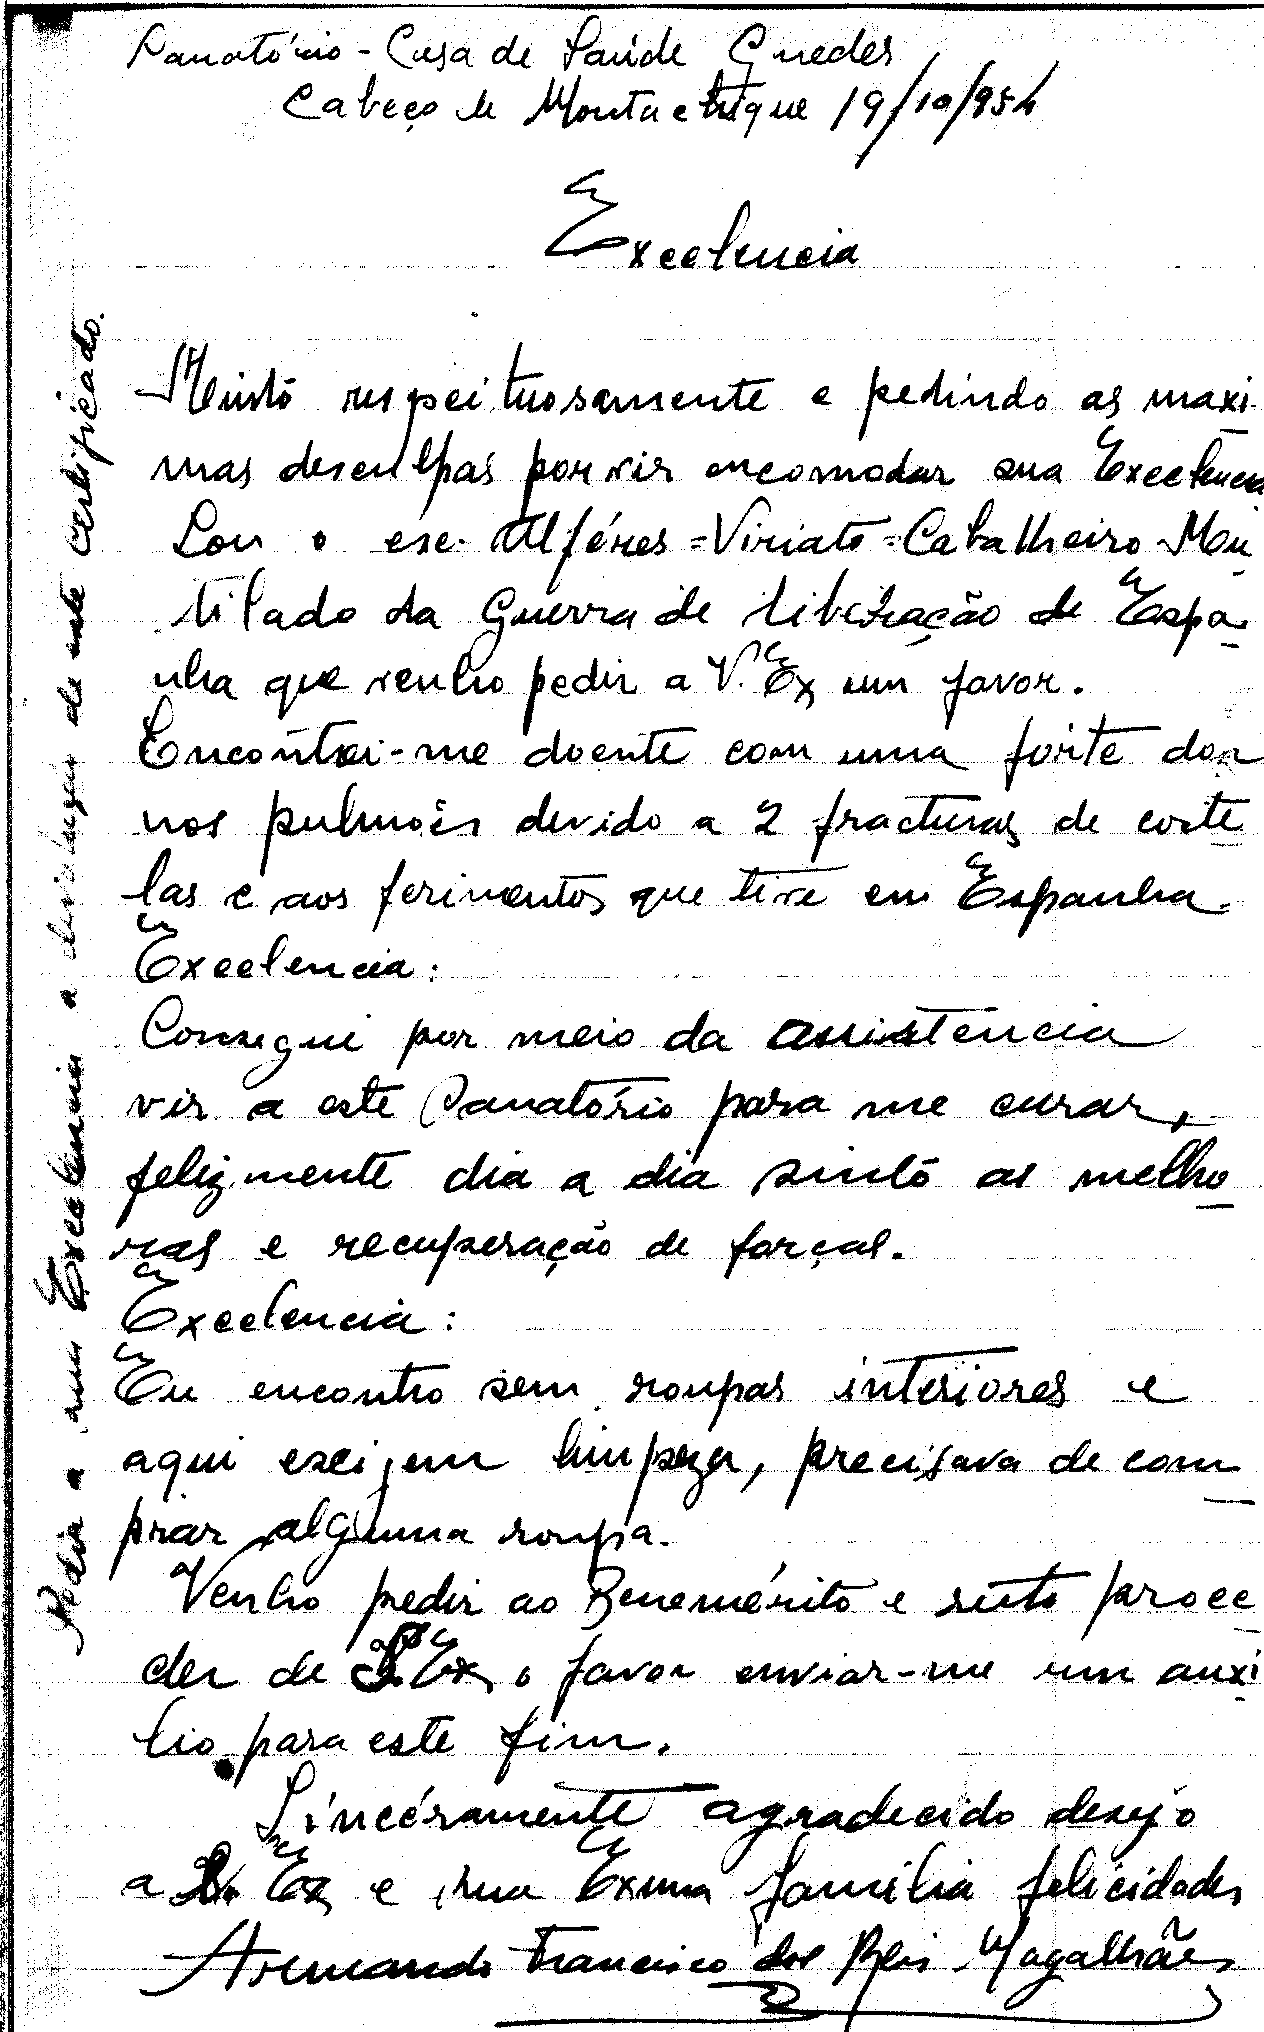 Sanatório - Casa de Saúde Guedes
Cabeço de Montachique 19/10/954
Excelencia
Muito respeituosamente e pedindo as maxi-
mas desculpas por vir encomodar sua Excelencia
Sou o ex. Alféres = Viriato = Cabalheiro Mu-
tilado da Guerra de libertação de Espa-
nha que venho pedir a V. Ex um favor.
Encontrei-me doente com uma forte dor
nos pulmões devido a 2 fracturas de coste-
las e aos ferimentos que tive em Espanha.
Excelencia:
Consegui por meio da assistencia
vir a este Sanatório para me curar,
felizmente dia a dia sinto as melho-
ras e recuperação de forças.
Excelencia:
Eu encontro sem roupas interiores e
aqui exijem limpeza, precisava de com-
prar alguma roupa.
Venho pedir ao Benemérito e recto proce-
der de S. Ex, o favor enviar-me um auxi-
lio para este fim.
Sincéramente agradecido desejo
a S. Ex e sua Exma familia felicidades
Armando Francisco dos Reis Magalhães
Pedia a sua Excelencia a devolução de este certificado.